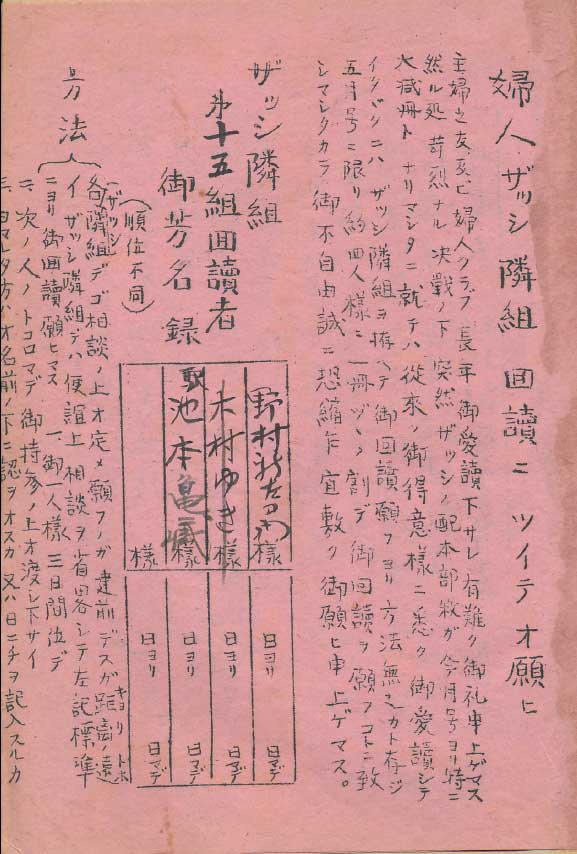 婦人ザッシ隣組 回讀ニツイテオ願ヒ
主婦之友及ビ婦人クラブ 長年御愛讀下サレ有難ク御礼申上ゲマス
然ル処 苛烈ナル決戰ノ下 突然ザッシノ配本部数ガ今月号ヨリ特ニ
大減冊トナリマシタニ就テハ 從來ノ御得意様ニ悉ク御愛讀シテ
イタダクニハ ザッシ隣組ヲ拵ヘテ御回讀願フヨリ方法無シカト存ジ
五月号ニ限リ約四人様ニ一冊ヅヽノ割デ御回讀ヲ願フコトニ致
シマシタカラ御不自由誠ニ恐縮乍宜敷ク御願ヒ申上ゲマス。
ザッシ隣組
第十五組回讀者
御芳名録
(順位不同)
野村 様 日ヨリ 日マデ
木村ゆき様 日ヨリ 日マデ
池本亀 様 日ヨリ 日マデ
様 日ヨリ 日マデ
方法
(ザッシ)
各隣組デゴ相談ノ上オ定メ願フノガ建前デスガ距離ノ遠
キョリ トホ
イザッシ隣組デハ便誼上相談ヲ省畧シテ左記標準
ニヨリ御回讀願ヒマス 一、御一人様 三日間位デ
二、次ノ人ノトコロマデ御持参ノ上オ渡シ下サイ
三、ヨマレタ方ハオ名前ノ下ニ認ヲオスカ又ハ日ニチヲ記入スルカ